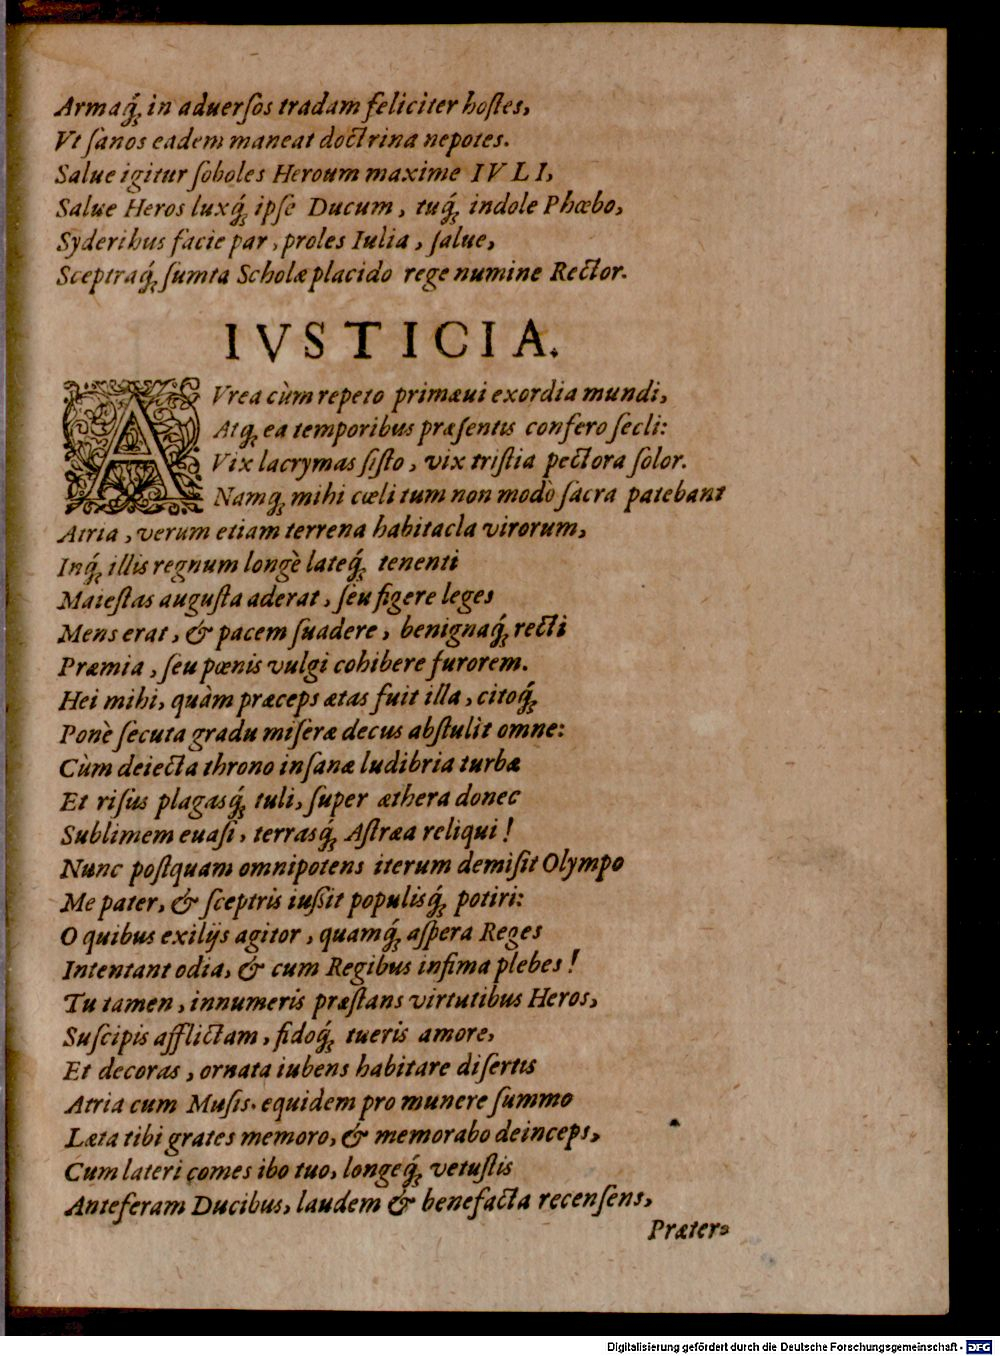 Armaq́; in aduerſos tradam feliciter hoſtes,
Vt ſanos eadem maneat doctrina nepotes.
Salue igitur ſoboles Heroum maxime IVLI,
Salue Heros luxq́; ipſe Ducum, tuq́; indole Phœbo,
Syderibus facie par, proles Iulia, ſalue,
Sceptraq́; ſumta Scholæ placido rege numine Rector.
IVSTICIA.
AVrea cùm repeto primæui exordia mundi,
Atq; ea temporibus præſentis confero ſecli:
Vix lacrymas ſiſto, vix triſtia pectora ſolor.
Namq; mihi cœli tum non modò ſacra patebant
Atria, verum etiam terrena habitacla virorum,
Inq́; illis regnum longè lateq́; tenenti
Maieſtas auguſta aderat, ſeu figere leges
Mens erat, & pacem ſuadere, benignaq́; recti
Præmia, ſeu pœnis vulgi cohibere furorem.
Hei mihi, quàm præceps ætas fuit illa, citoq́;
Ponè ſecuta gradu miſeræ decus abſtulit omne:
Cùm deiecta throno inſanæ ludibria turbæ
Et riſus plagasq́; tuli, ſuper æthera donec
Sublimem euaſi, terrasq́; Aſtræa reliqui!
Nunc poſtquam omnipotens iterum demiſit Olympo
Me pater, & ſceptris iuſsit populisq́; potiri:
O quibus exilijs agitor, quamq́; aſpera Reges
Intentant odia, & cum Regibus infima plebes!
Tu tamen, innumeris præſtans virtutibus Heros,
Suſcipis afflictam, fidoq́; tueris amore,
Et decoras, ornata iubens habitare diſertis
Atria cum Muſis. equidem pro munere ſummo
Læta tibi grates memoro, & memorabo deinceps,
Cum lateri comes ibo tuo, longeq́; vetuſtis
Anteferam Ducibus, laudem & benefacta recenſens,
Præter-
Digitalisierung gefördert durch die Deutsche Forschungsgemeinschaft - DFG